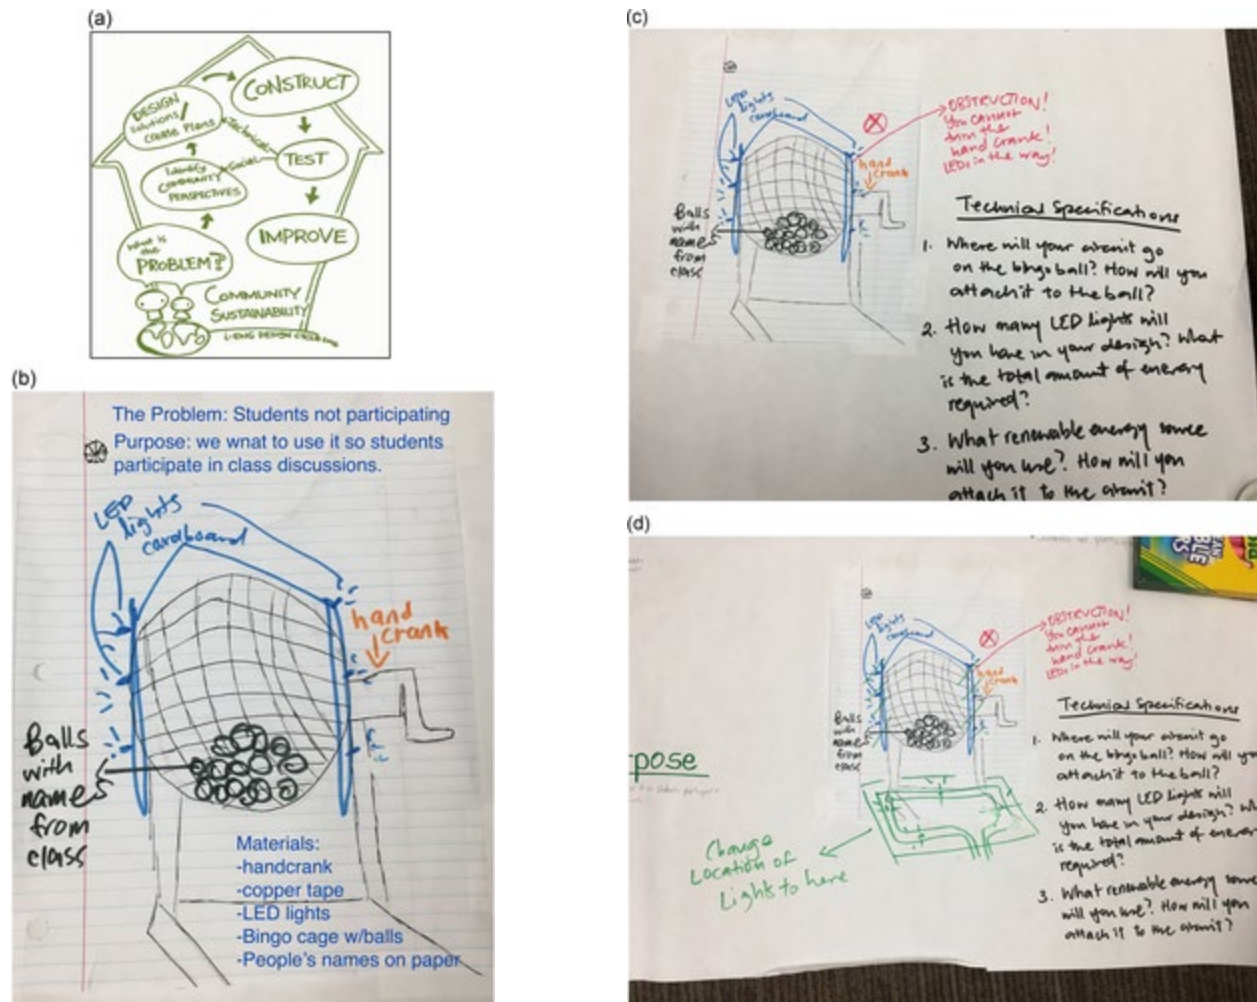 (a)
CONSTRUCT
DESIGN
solutions/
Course Plans
Technical
TEST
Social
Identify
COMMUNITY
PERSPECTIVES
IMPROVE
What is
the
PROBLEM?
COMMUNITY
SUSTAINABILITY
(b)
The Problem: Students not participating
Purpose: we wnat to use it so students
participate in class discussions.
LED
lights
cardboard
hand
crank
Balls
with
names
from
class
Materials:
-handcrank
-copper tape
-LED lights
-Bingo cage w/balls
-People's names on paper
(c)
LED
lights
cardboard
OBSTRUCTION!
You cannot
turn the
hand crank!
LEDs in the way!
hand
crank
Balls
with
names
from
class
Technical Specifications
1. Where will your circuit go
on the bingo ball? How will you
attach it to the ball?
2. How many LED lights will
you have in your design? What
is the total amount of energy
required?
3. What renewable energy source
will you use? How will you
attach it to the circuit?
(d)
LED
lights
cardboard
OBSTRUCTION!
You cannot
turn the
hand crank!
LEDs in the way!
hand
crank
Balls
with
names
from
class
pose
Change
Location of
Lights to here
Technical Specifications
1. Where will your circuit go
on the bingo ball? How will you
attach it to the ball?
2. How many LED lights will
you have in your design?
is the total amount of energy
required?
3. What renewable energy source
will you use? How will you
attach it to the circuit?